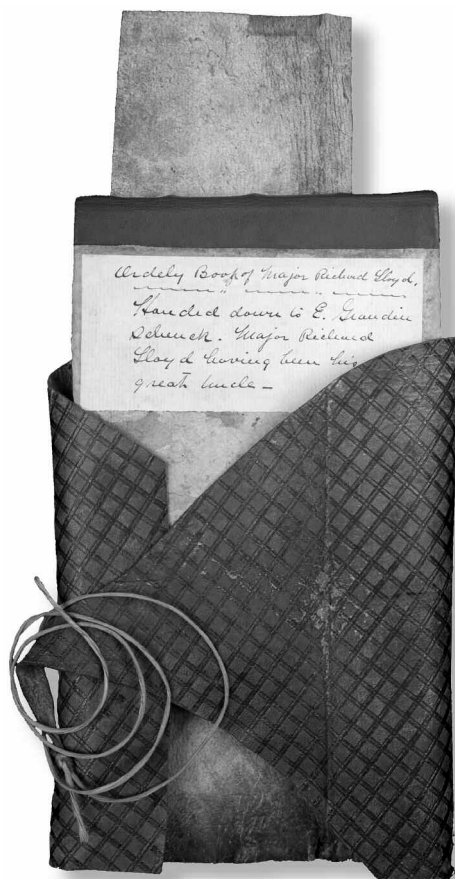 Ordely Book of Major Richard Lloyd.
Handed down to E. Grandin
Schenck. Major Richard
Lloyd having been his
great Uncle -